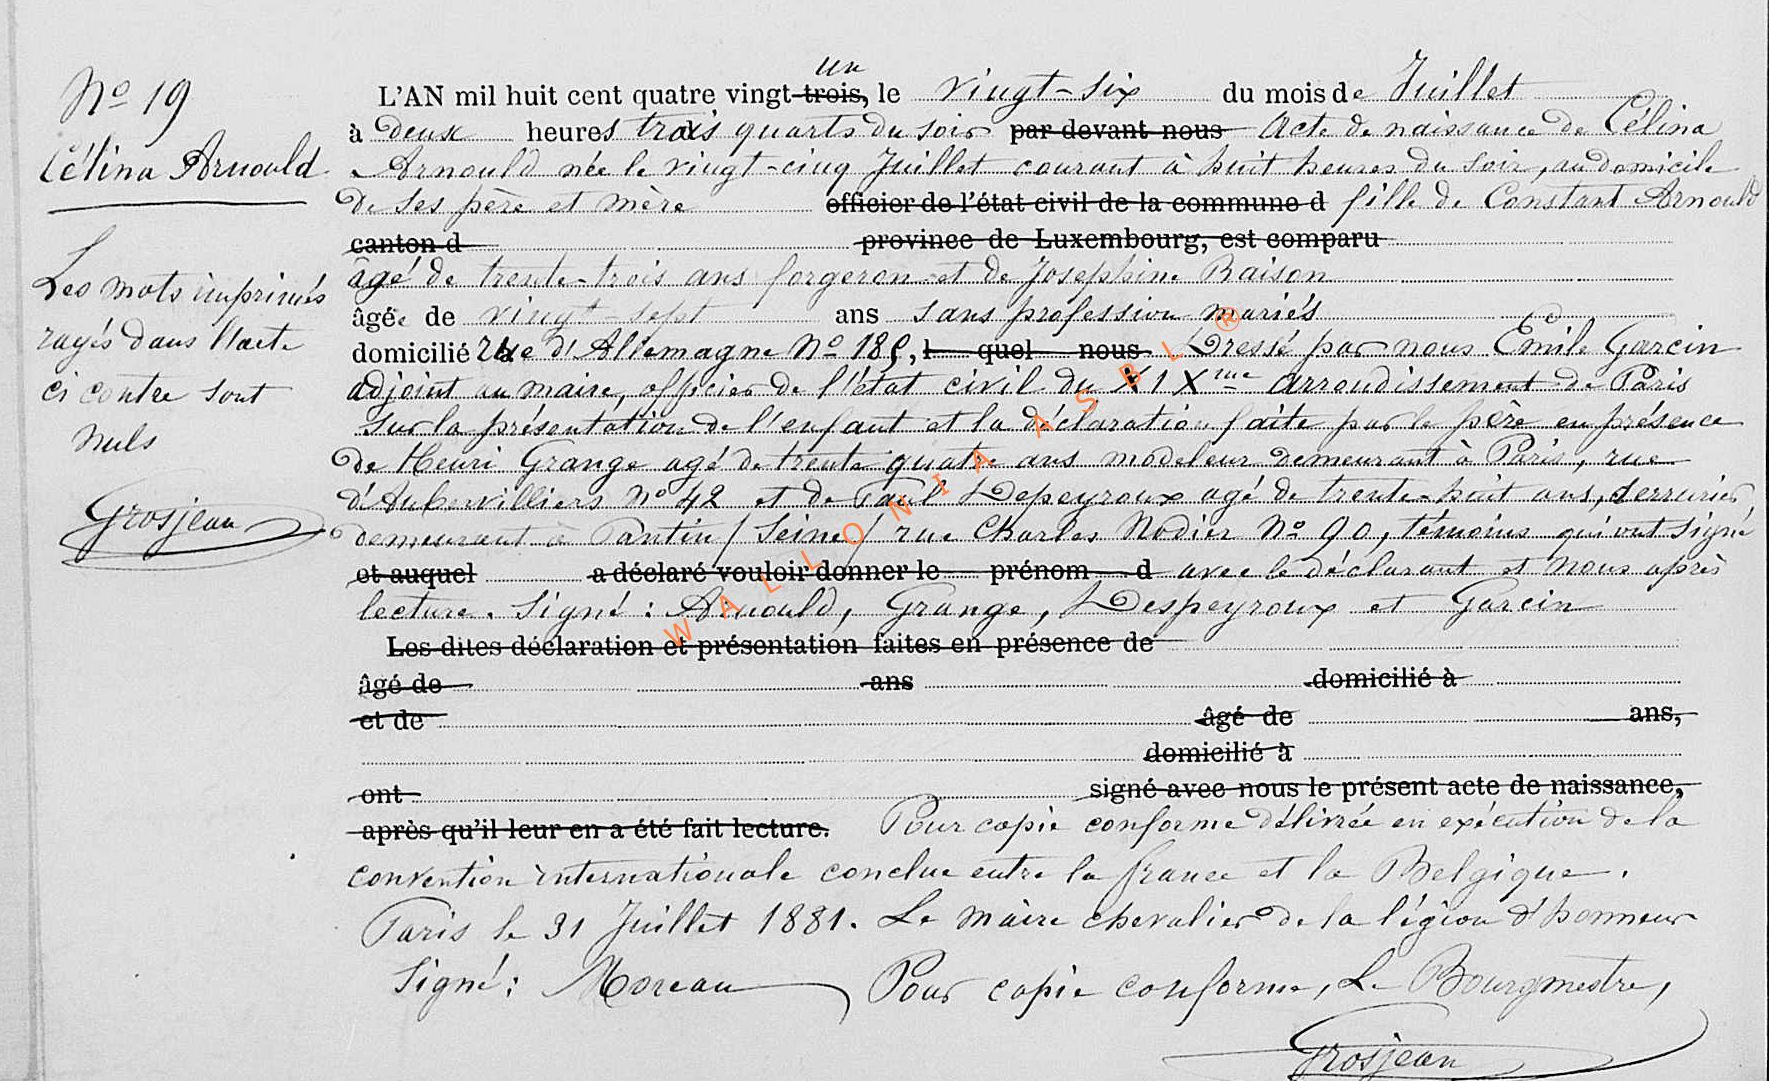 No 19
Célina Arnould
Les mots imprimés
rayés dans l'acte
ci contre sont
nuls
Grosjean
un
L'AN mil huit cent quatre vingt-trois, le vingt-six du mois de Juillet
à deux heures trois quarts du soir par devant nous Acte de naissance de Célina
Arnould née le vingt-cinq Juillet courant à huit heures du soir, au domicile
de ses père et mère officier de l'état civil de la commune d fille de Constant Arnould
canton d province de Luxembourg, est comparu
âgé de trente-trois ans forgeron et de Josephine Raison
âgée de vingt-sept ans sans profession mariés
domicilié rue d'Allemagne No 185, l quel nous Dressé par nous Emile Garcin
adjoint au maire, officier de l'état civil du X1Xme arrondissement de Paris
sur la présentation de l'enfant et la déclaration faite par le père en présence
de Henri Grange agé de trente quatre ans modeleur demeurant à Paris, rue
d'Aubervilliers No 42 et de Paul Depeyroux agé de trente-huit ans, serrurier
demeurant à Pantin / Seine / rue Charles Nodier No 90, témoins qui ont signé
et auquel a déclaré vouloir donner le prénom d avec le déclarant et nous après
lecture. Signé : Arnould, Grange, Despeyroux et Garcin
Les dites déclaration et présentation faites en présence de
âgé de ans domicilié à
et de âgé de ans,
domicilié à
ont signé avec nous le présent acte de naissance,
après qu'il leur en a été fait lecture. Pour copie conforme délivrée en exécution de la
convention internationale conclue entre la france et la Belgique.
Paris le 31 Juillet 1881. Le maire chevalier de la légion d'honneur
Signé : Moreau Pour copie conforme, Le Bourgmestre,
Grosjean
WALLONIA ASBL ®